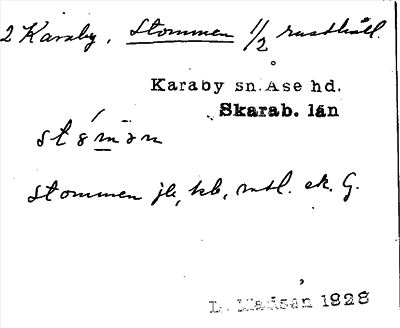 2 Karaby, Stommen 1/2 rusthåll.
Karaby sn. Åse hd.
Skarab. län
stommen jb, kb, mtl. ek. G.
L. Madsén 1928